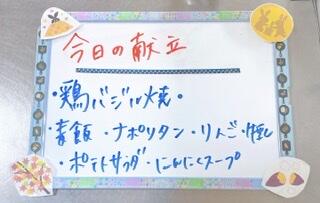 今日の献立
・鶏バジル焼・
・麦飯・ナポリタン・りんご・
・ポテトサラダ・にんにくスープ